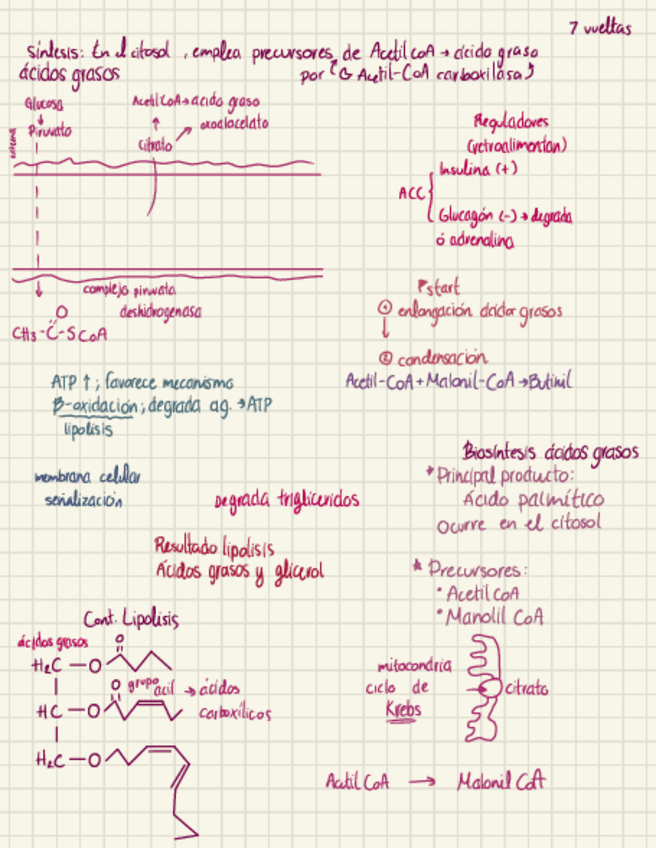 7 vueltas
Síntesis: En el citosol, emplea precursores de Acetil CoA → ácido graso
ácidos grasos por (G Acetil-CoA carboxilasa)
Glucosa
Piruvato
externa
Acetil CoA → ácido graso
oxoalacelato
Citrato
complejo piruvato
deshidrogenasa
O
CH3-C-SCoA
Reguladores
(retroalimentan)
Insulina (+)
ACC
Glucagón (-) → degrada
ó adrenalina
start
① enlongación ácidor grasos
② condensación
Acetil-CoA + Malonil-CoA → Butinil
ATP ↑; favorece mecanismo
β-oxidación; degrada ag. → ATP
lipolisis
membrana celular
señalización
Degrada trigliceridos
Resultado lipolisis
Ácidos grasos y glicerol
Biosíntesis ácidos grasos
* Principal producto:
Ácido palmítico
Ocurre en el citosol
* Precursores:
• Acetil CoA
• Manolil CoA
Cont. Lipolisis
ácidos grasos
O
H2C - O
O grupo acil → ácidos
HC - O carboxílicos
H2C - O
mitocondria
ciclo de
Krebs
citrato
Acetil CoA → Malonil CoA